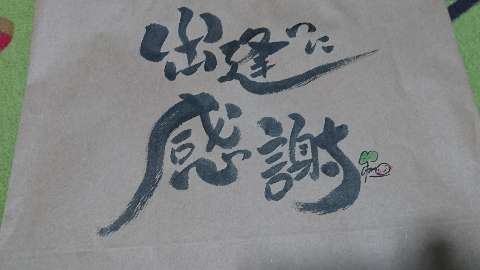 出逢いに
感謝